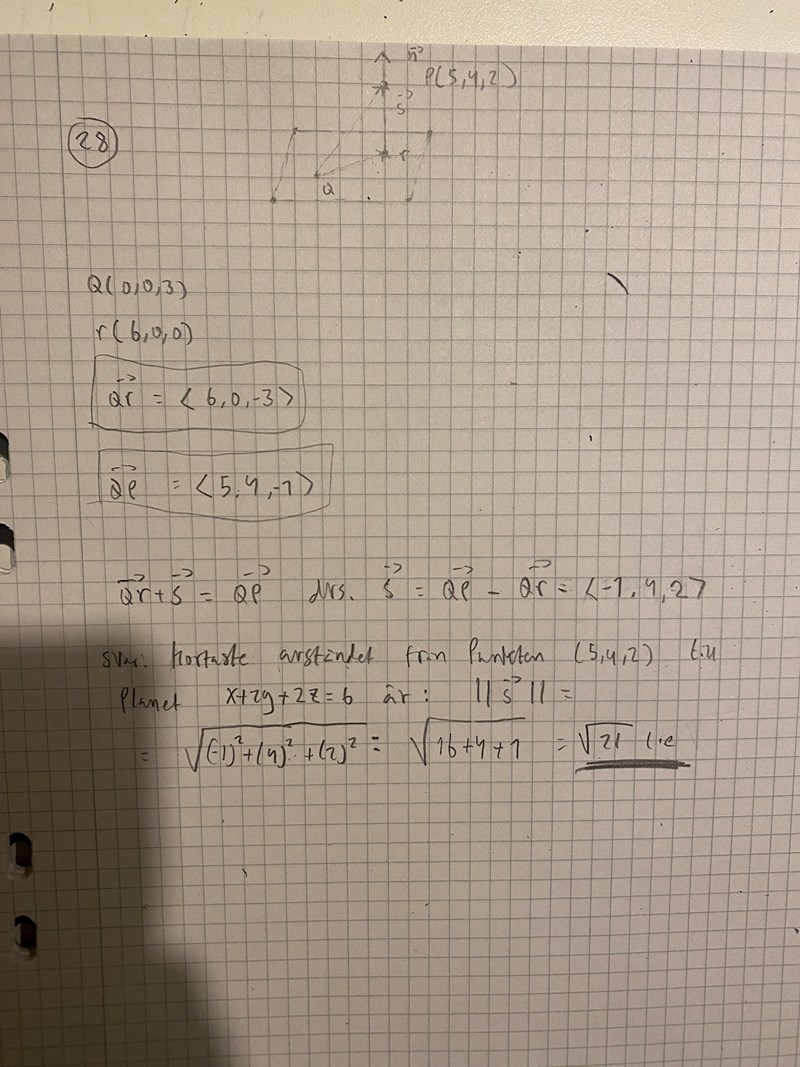 n⃗
P(5,4,2)
s⃗
28
r
Q
Q(0,0,3)
r(6,0,0)
Qr⃗ = < 6,0,-3>
QP⃗ = <5,4,-1>
Qr⃗ + s⃗ = QP⃗ dvs. s⃗ = QP⃗ - Qr⃗ = <-1,4,2>
svar: kortaste avståndet från Punkten (5,4,2) till
Planet x+2y+2z=6 är: ||s⃗|| =
= √(-1)²+(4)²+(2)² = √16+4+1 = √21 l.e